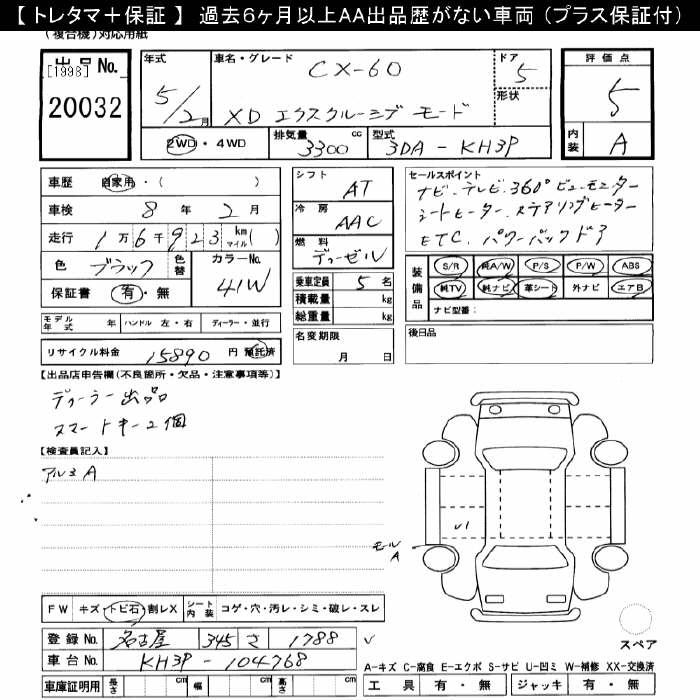 【 トレタマ＋保証 】 過去6ヶ月以上AA出品歴がない車両（プラス保証付）
（複合機）対応用紙
出品 No.
[1998]
20032
年式
5/2月
車名・グレード
CX-60
XD エクスクルーシブ モード
ドア
5
形状
評価点
5
内装
A
2WD・4WD
排気量
3300 cc
型式
3DA - KH3P
車歴 自家用・（ ）
車検 8 年 2 月
走行 1万6千923 km マイル（ ）
色 ブラック 色替
カラーNo.
41W
保証書 有・無
モデル年式 年 ハンドル 左・右 ディーラー・並行
リサイクル料金 15890 円 預託済
シフト
AT
冷房
AAC
燃料
ディーゼル
乗車定員 5 名
積載量 kg
総重量 kg
名変期限
月 日
セールスポイント
ナビ.テレビ.360°ビューモニター
シートヒーター.ステアリングヒーター
ETC. パワーバックドア
装備品
S/R 純A/W P/S P/W ABS
純TV 純ナビ 革シート 外ナビ エアB
ナビ型番：
後日品
【出品店申告欄(不良箇所・欠品・注意事項等)】
ディーラー出品
スマートキー2個
【検査員記入】
アルミA
モール
A
U1
FW キズ・トビ石・割レX シート内装 コゲ・穴・汚レ・シミ・破レ・スレ
登録 No. 名古屋 345 さ 1788
車台 No. KH3P - 104768
車庫証明用 長さ cm 幅 cm 高さ cm
スペア
A-キズ C-腐食 E-エクボ S-サビ U-凹ミ W-補修 XX-交換済
工具 有・無 ジャッキ 有・無